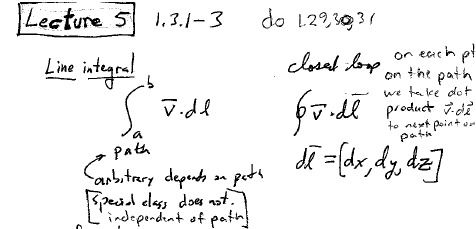 Lecture 5 1.3.1-3 do 1.29,30,31
Line integral
∫ₐᵇ v̄·dl
path
arbitrary depends on path
[special class does not.
independent of path]
closed loop
∮ v̄·dl̄
dl̄ = [dx, dy, dz]
on each pt
on the path
we take dot
product v̄·dl̄
to next point on
path